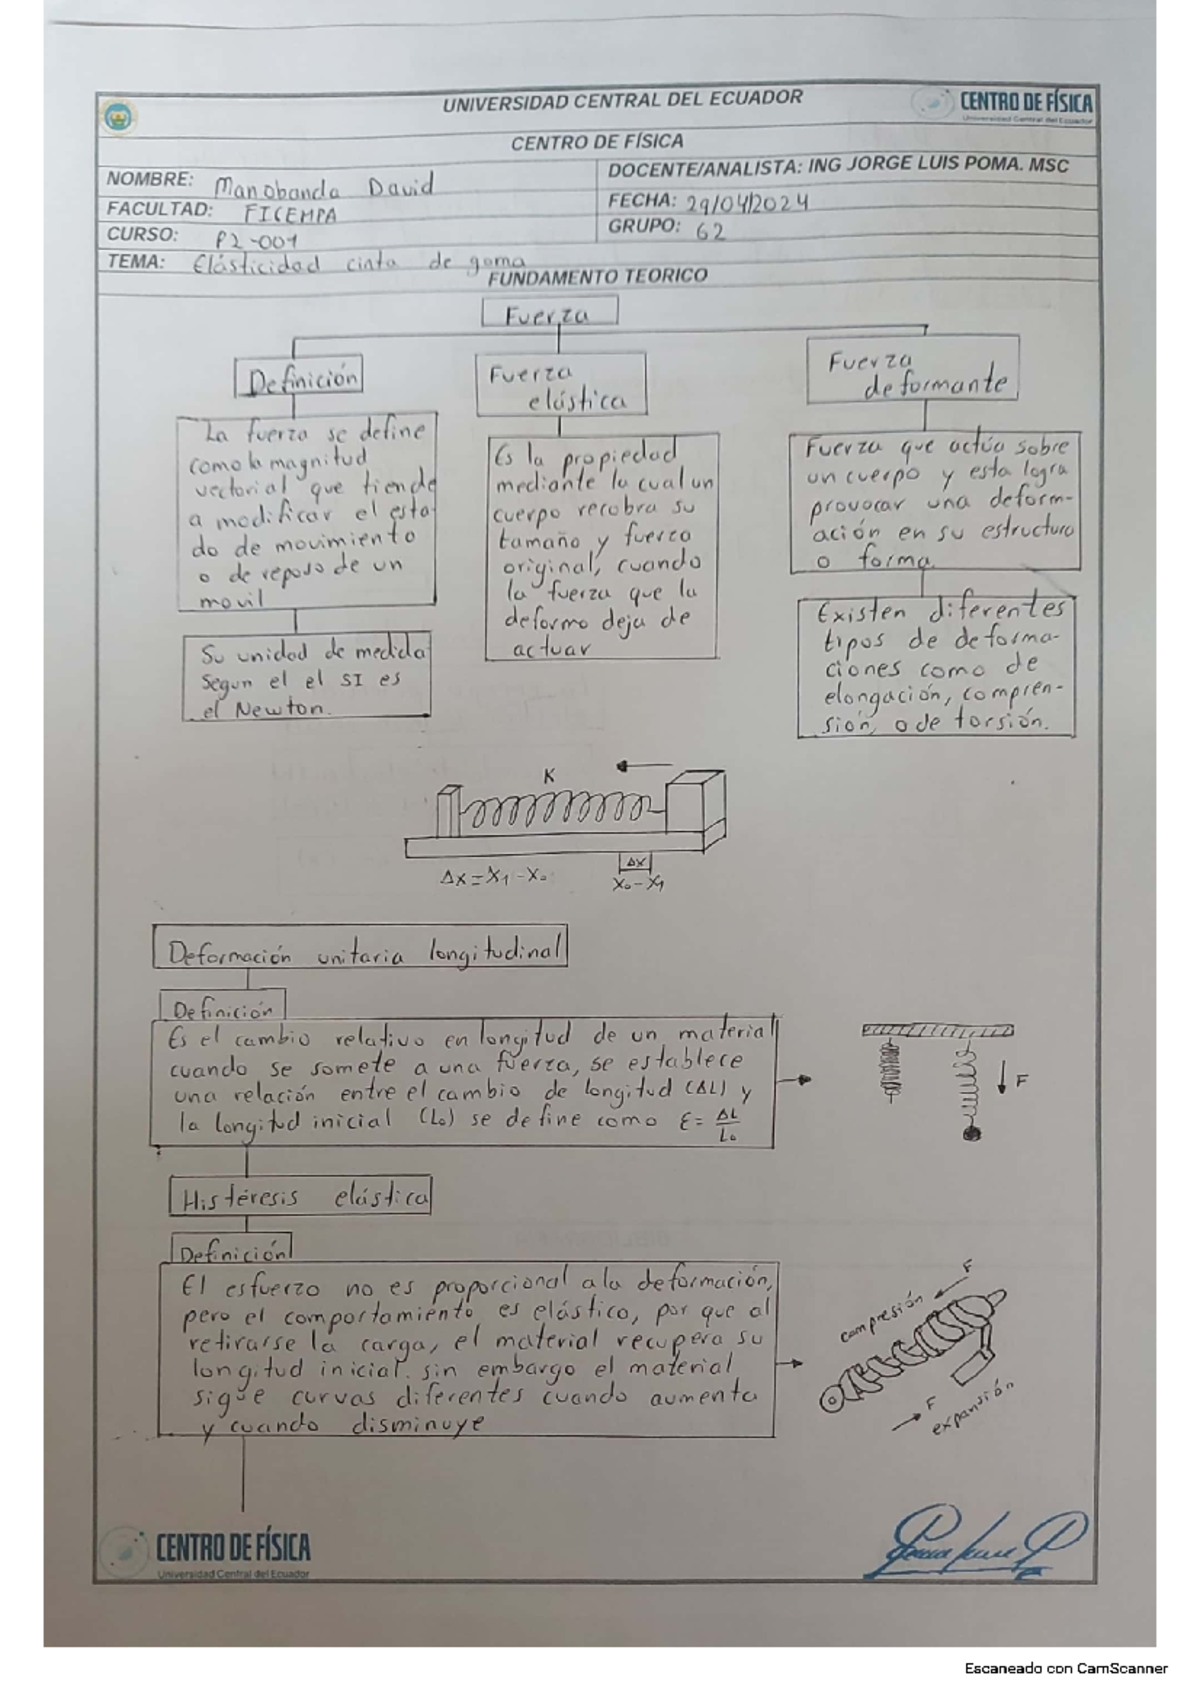 UNIVERSIDAD CENTRAL DEL ECUADOR
CENTRO DE FÍSICA
Universidad Central del Ecuador
CENTRO DE FÍSICA
NOMBRE: Manobanda David
DOCENTE/ANALISTA: ING JORGE LUIS POMA. MSC
FACULTAD: FICEMPA
FECHA: 29/04/2024
CURSO: P2-001
GRUPO: 62
TEMA: Elásticidad cinta de goma
FUNDAMENTO TEORICO
Fuerza
Definición
La fuerza se define
como la magnitud
vectorial que tiende
a modificar el esta-
do de movimiento
o de reposo de un
movil
Su unidad de medida
Segun el el SI es
el Newton.
Fuerza
elástica
Es la propiedad
mediante la cual un
cuerpo recobra su
tamaño y fuerza
original, cuando
la fuerza que la
deformo deja de
actuar
Fuerza
deformante
Fuerza que actúa sobre
un cuerpo y esta logra
provocar una deform-
ación en su estructura
o forma.
Existen diferentes
tipos de deforma-
ciones como de
elongación, compren-
sión, o de torsión.
K
Δx
Δx = X1 - X0
X0 - X1
Deformación unitaria longitudinal
Definición
Es el cambio relativo en longitud de un material
cuando se somete a una fuerza, se establece
una relación entre el cambio de longitud (ΔL) y
la longitud inicial (L0) se define como ε = ΔL/L0
F
Histéresis elástica
Definición
El esfuerzo no es proporcional a la deformación,
pero el comportamiento es elástico, por que al
retirarse la carga, el material recupera su
longitud inicial. sin embargo el material
sigue curvas diferentes cuando aumenta
y cuando disminuye
F
compresión
F
expansión
CENTRO DE FÍSICA
Universidad Central del Ecuador
Escaneado con CamScanner